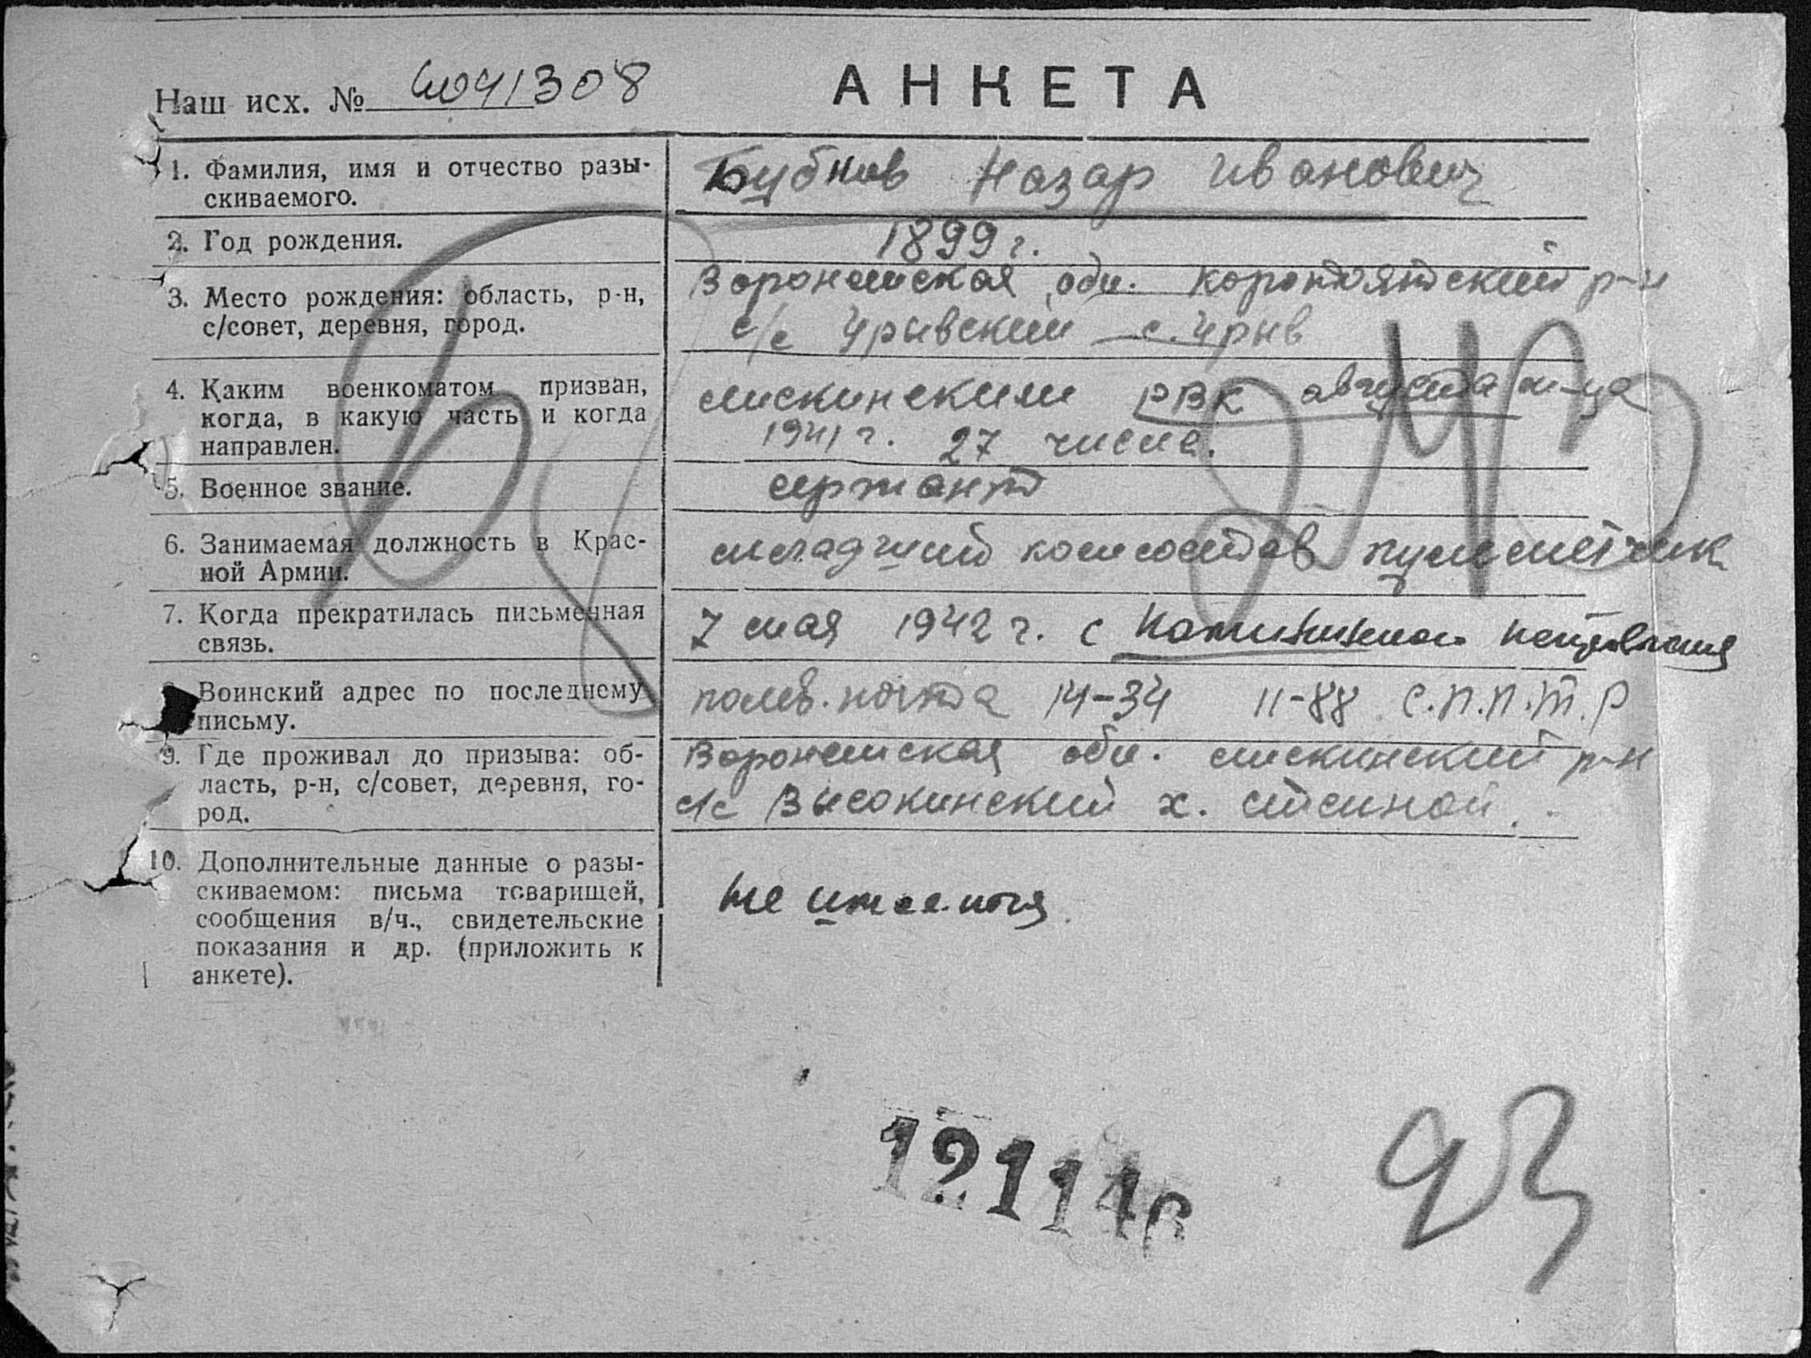 Наш исх. № 4041308
АНКЕТА
1. Фамилия, имя и отчество разы-
скиваемого.
Бубнов Назар Иванович
2. Год рождения.
1899 г.
3. Место рождения: область, р-н,
с/совет, деревня, город.
Воронежская обл. Коротоякский р-н
с/с Урывский с. Урыв
4. Каким военкоматом призван,
когда, в какую часть и когда
направлен.
Лискинским РВК августа м-ца
1941 г. 27 числа.
5. Военное звание.
сержант
6. Занимаемая должность в Крас-
ной Армии.
младший комсостав пулеметчик
7. Когда прекратилась письменная
связь.
7 мая 1942 г. с
Воинский адрес по последнему
письму.
полев. почта 14-34 11-88 С.П.П.Т.Р
9. Где проживал до призыва: об-
ласть, р-н, с/совет, деревня, го-
род.
Воронежская обл. Лискинский р-н
с/с Высокинский х.
10. Дополнительные данные о разы-
скиваемом: письма товарищей,
сообщения в/ч., свидетельские
показания и др. (приложить к
анкете).
Не имеется
121146
93